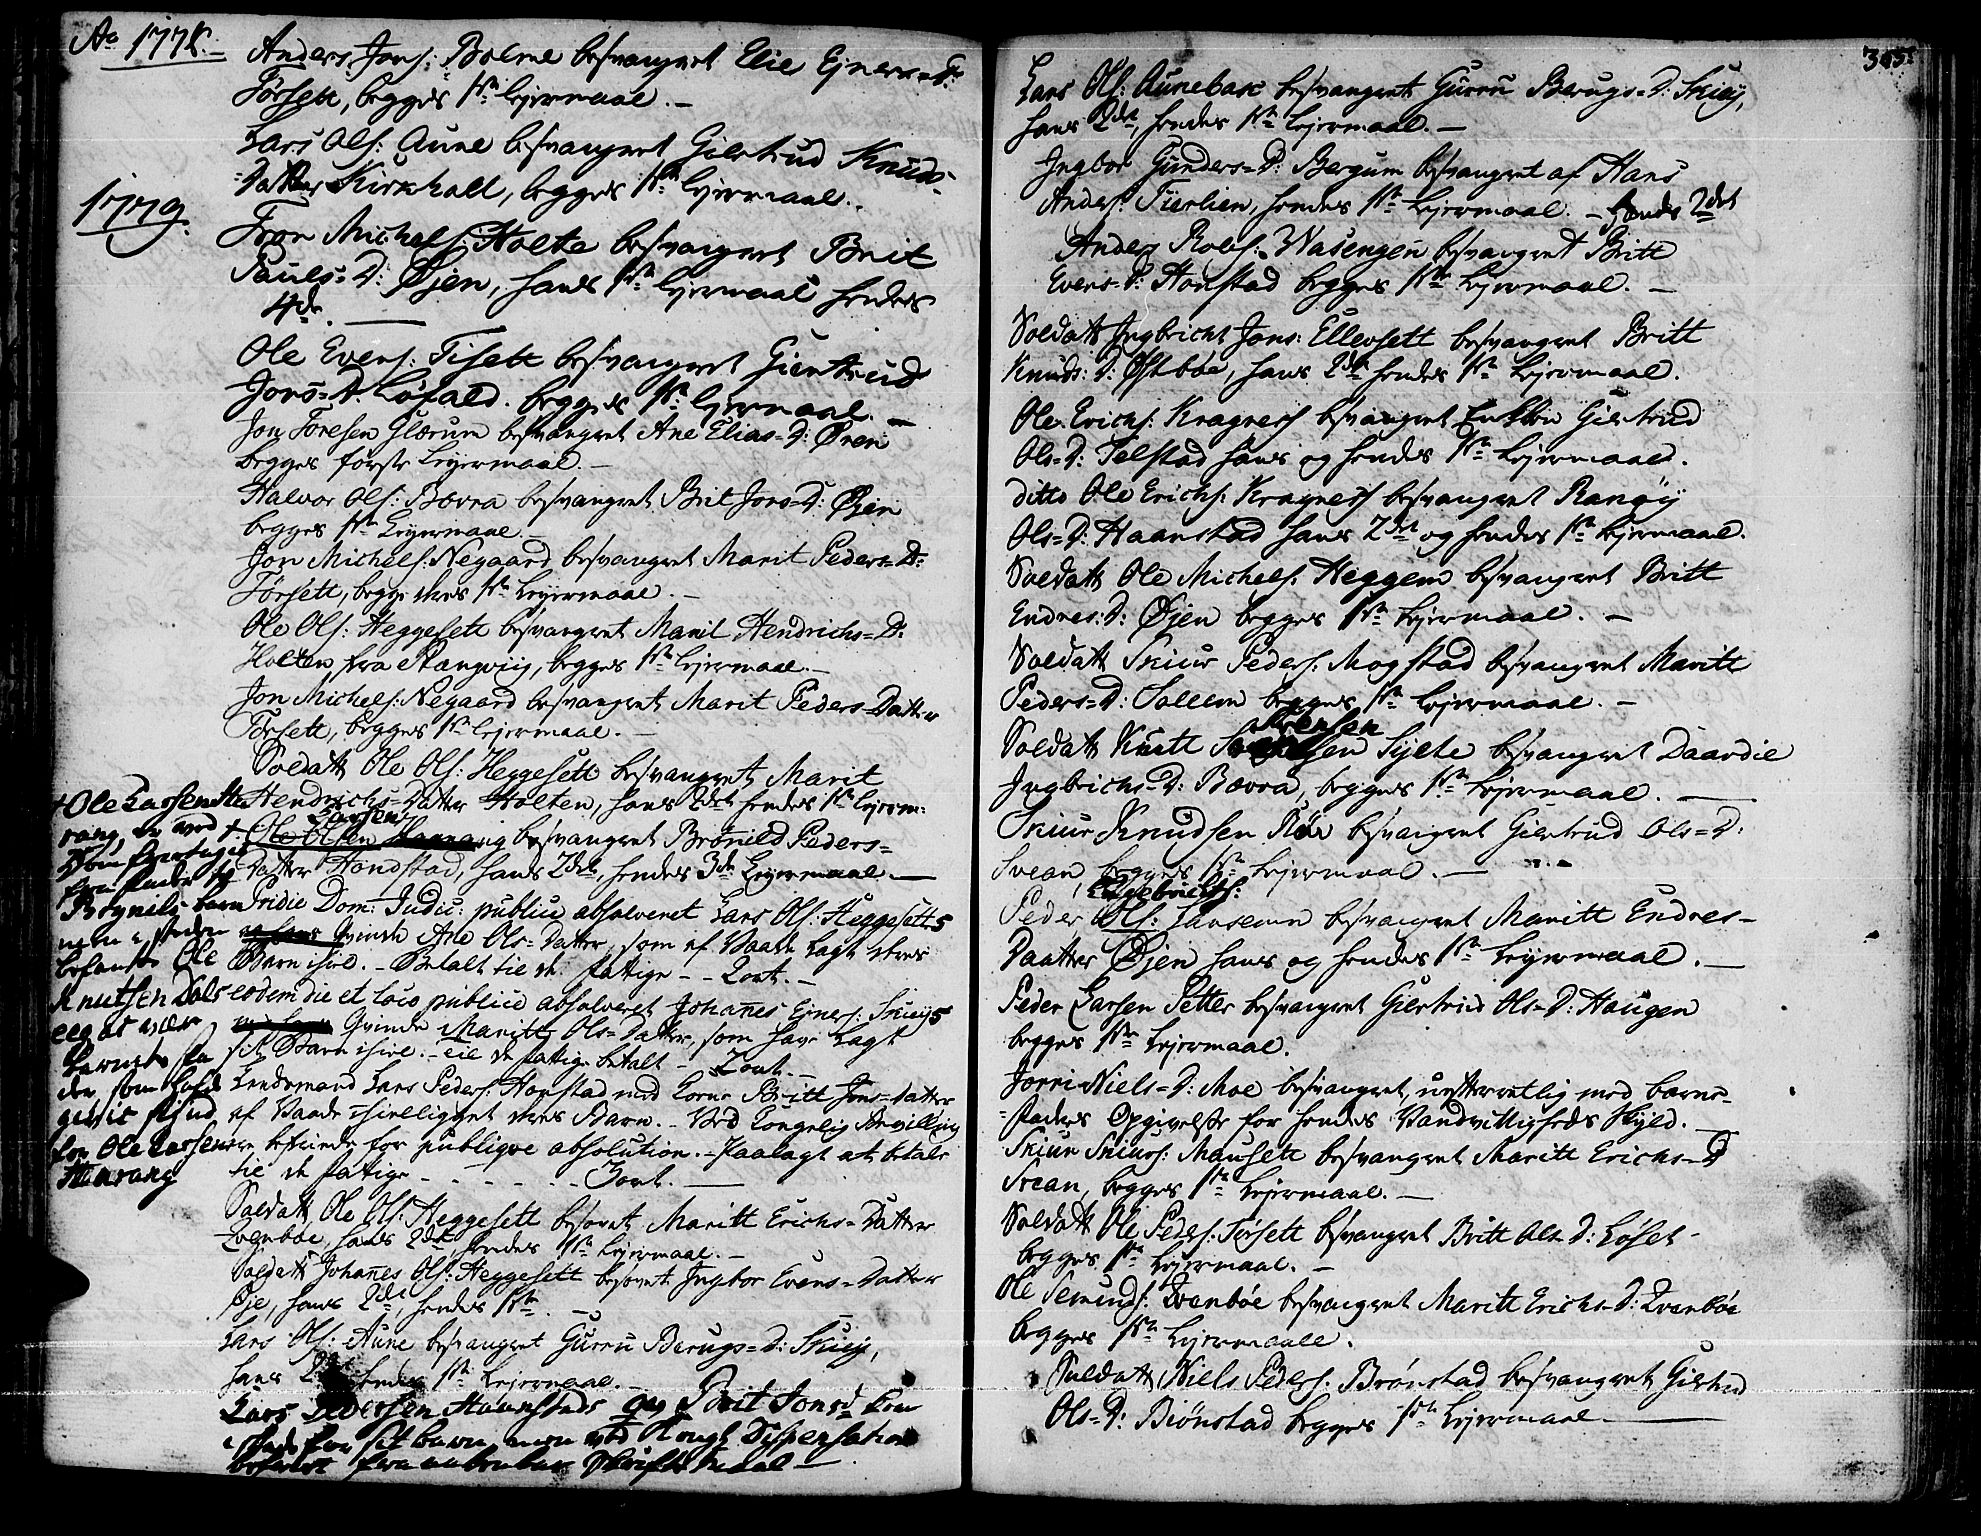 Ao 1778.
Anders Jons: Bolme besvangret Elie Ejners=D:
Torsett, begges 1ste lejermaal.
Lars Ols: Aune besvangret Giertrud Knuds=
=Datter Kirkhall, begges 1ste lejermaal.
1779.
Tron Michels: Holte besvangret Brit
Pauls=D: Øjen, hans 1ste lejermaal hendes
4de.
Ole Evens: Tisett besvangret Giertrud
Jons=D. Løfald. begges 1ste lejermaal.
Jon Toresen Glærum besvangret Ane Elias=D: Øren
begges første Leyermaal.
Halvor Ols: Bævra besvangret Brit Jons=D: Øjen
begges 1ste Leyermaal.
Jon Michels: Negaard besvangret Marit Peders=D:
Torsett, begge deres 1ste Leyermaal.
Ole Ols: Heggesett besvangret Marit Hendrichs=D:
Holten fra Stangvig, begges 1ste lejermaal.
Jon Michels: Negaard besvangret Marit Peders=Datter
Torsett, begges 1ste Lejermaal.
Soldatt Ole Ols: Heggesett besvangret Marit
Hendrichs=Datter Holten, hans 2det hendes 1ste lejerm:
Larsen
Ole Olsen besvangret Brønild Peders=
Datter Hondstad, hans 2det, hendes 3die Leyermaal.
Pridie Dom: Judic: publice absolveret Lars Ols: Heggesett
Qvinde Ane Ols=Datter, som af Vaade lagt deres
Barn ihiel. - Betalt til de fattige - - 2ort.
eodem die et loco publice absolveret Johanes Ejners: Skiej
Qvinde Maritt Ols=Datter, som hav lagt
sit Barn ihiel. - til de fattige betalt - 2ort.
Lendsmand Lars Peders: Honstad med Kone Britt Jons=datter
af Vaade ihielligget deres Barn. - Ved Kongelig Bevilling
er befriede for publique absolution. - Paalagt at betale
til de fattige - - - - - 3ort.
Soldatt Ole Ols: Heggesett besovet Maritt Erichs=Datter
Qvenbøe, hans 2det hendes 1ste lejermaal.
Soldatt Johanes Ols: Heggesett besovet Ingbor Evens=Datter
Øje, hans 2det, hendes 1ste
Lars Ols: Aune besvangret Gurru Berugs=D: Skiej,
hans 2det hendes 1ste Lejermaal.
Lars Pedersen Haanstad og Brit Jonsd
sit barn, men ved Kongl. Dispensation
befriet fra aabenbar Skriftemaal
+ Ole Larsen Ha
rang
Brynild
befantes Ole
Knutsen Dals
eeg at være
barnets fa
der som
for Ole Larsen
Harang
305.
Lars Ols: Aunebak besvangret Gurru Berugs=D: Skiej,
hans 2det, hendes 1ste Lejermaal.
Ingbor Gunders=D: Bergum besvangret af Hans
Anders: Tierlien, hendes 1ste Lejermaal. - hands 2det
Anders Rolfs: Wasengen besvangret Britt
Evens=D: Honstad begges 1ste Lejermaal.
Soldatt Ingbricht Jons: Ellevsett besvangret Britt
Knuds:D: Østbøe, hans 2det hendes 1ste Lejermaal.
Ole Erichs: Kragnes besvangret Enken Giertrud
Ols=D: Telstad hans og hendes 1ste Lejermaal.
ditto Ole Erichs: Kragnes besvangret Rangøy
Ols=D: Haanstad hans 2det og hendes 1ste lejermaal.
Soldatt Ole Michels: Heggem besvangret Britt
Endres:D: Øjen begges 1ste Lejermaal.
Soldatt Skiur Peders: Mogstad besvangret Maritt
Peders=D: Sollem begges 1ste lejermaal.
Soldatt Knutt Sylte besvangret Daardie
Ingbrichs=D: Bævra, begges 1ste Lejermaal.
Skiur Knudsen Røe besvangret Giertrud Ols=D:
Svean, begges 1ste Lejermaal.
Engebrichts:
Peder Ols: Hansemn besvangret Maritt Endres-
Daatter Øjen hans og hendes 1ste Leyermaal.
Peder Larsen Setter besvangret Giertrud Ols=D: Haugen
begges 1ste Lejermaal.
Jorri Niels=D: Moe besvangret, uefterretlig med barne-
faders Opgivelse for hendes Vandvittigheds skyld.
Skiur Skiurs: Mausett besvangret Maritt Erichs=D
Svean, begges 1ste Lejermaal.
Soldatt Ole Peders: Torsett besvangret Britt Ols=D: Løset
begges 1ste Lejermaal.
Ole Semunds: Qvenbøe besvangret Maritt Erichs=D: Qvenbøe
begges 1ste Lejermaal.
Soldatt Niels Peders: Brønstad besvangret Giertrud
Ols=D: Biønstad begges 1ste Lejermaal.